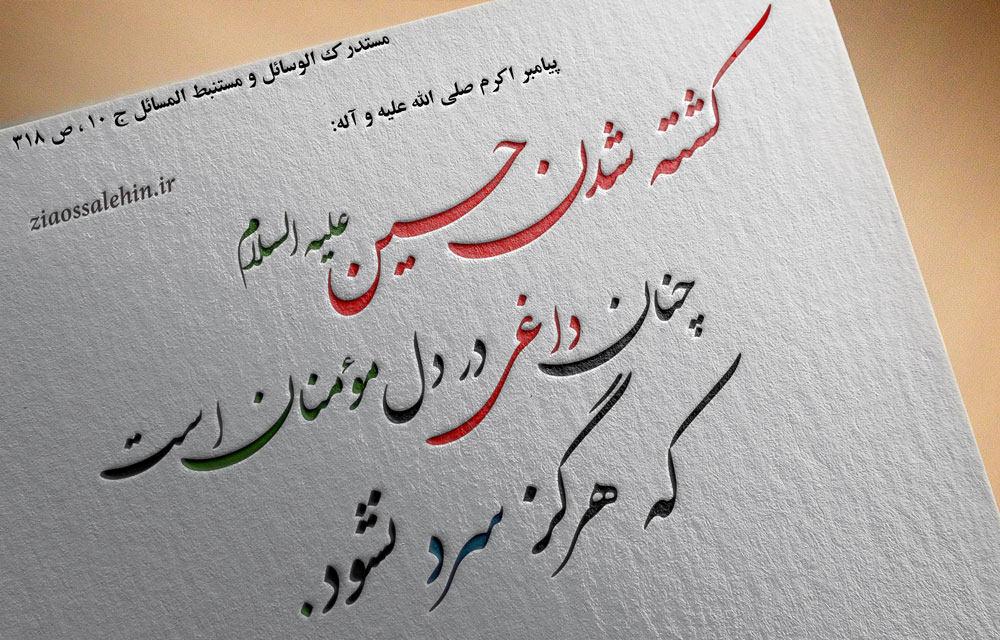 مستدرک الوسائل و مستنبط المسائل ج ۱۰، ص ۳۱۸
پیامبر اکرم صلی الله علیه و آله:
ziaossalehin.ir
کشته شدن حسین علیه السلام
چنان داغی در دل مؤمنان است
که هرگز سرد نشود.